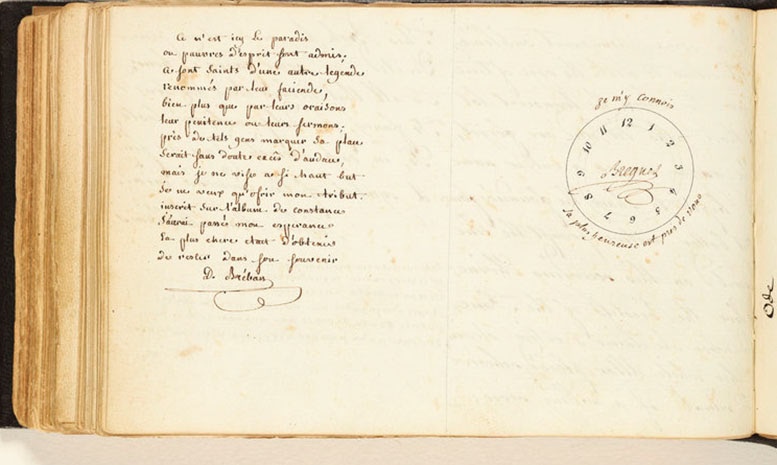 Ce n'est icy le paradis
ou pauvres d'esprit sont admis;
Ce sont saints d'une autre legende
renommés par leur faciende,
bien plus que par leurs oraisons
leur penitence ou leurs sermons;
près de tels gens marquer sa place
serait sans doute excès d'audace,
mais je ne vise a si haut but
Je ne veux qu'ofrir mon tribut.
inscrit sur l'album de constance
J'aurai passé mon esperance
La plus chere etait d'obtenir
de rester dans son souvenir
D. Bréban
je m'y connois
12
1
2
3
4
5
6
7
8
9
10
11
Breguet
la plus heureuse est près de vous
Ode